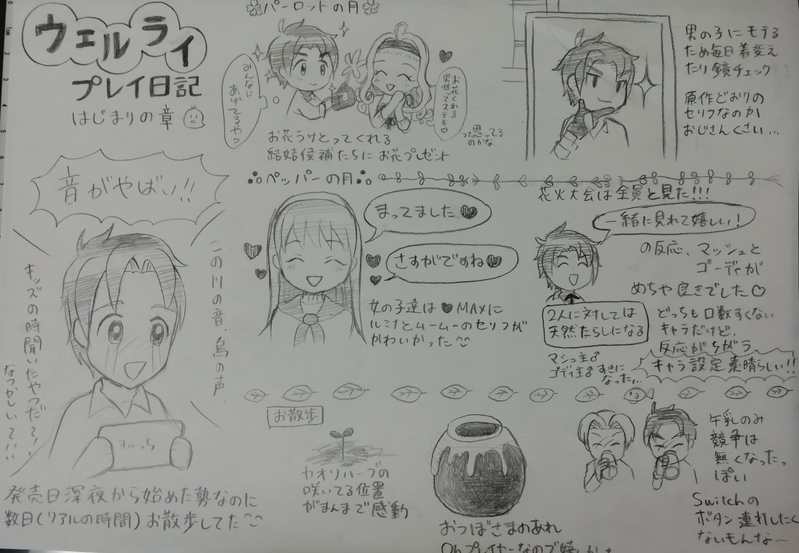 ウェルライ
プレイ日記
はじまりの章
音がやばい!!
この川の音、鳥の声、
キッズの時間聞いたやつだて〜!
なつかしいて!!!
すいっち
発売日深夜から始めた勢なのに
数日(リアルの時間)お散歩してた〜
パーロットの月
みんなに
あげてるやつ
お花くれる
男性ってステキ♡
って思ってる
のかな
お花うけとってくれる
結婚候補たちにお花プレゼント
男の子にモテる
ため毎日着変え
たり鏡チェック
原作どおりの
セリフなのか
おじさんくさい…
ペッパーの月
まってました♥
さすがですね♥
女の子達は♥MAXに
ルミナとムームーのセリフが
かわいかった〜
花火大会は全員と見た!!!
一緒に見れて嬉しい!
の反応、マッシュと
ゴーディが
めちゃ良きでした♡
2人に対しては
天然たらしになる
マシュ主♂
ゴディ主♂すきに
なった…
どっちも口数すくない
キャラだけど、
反応がちがう
キャラ設定素晴らしい!!
お散歩
カオリハーブの
咲いてる位置
がまんまで感動
おつぼさまのあれ
牛乳のみ
競争は
無くなったっ
ぽい
Switchの
ボタン連打したく
ないもんな〜